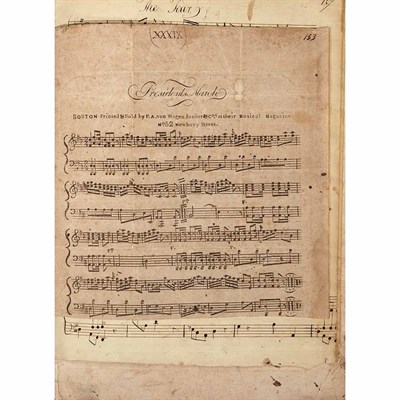 The
XXXIX
153
President's March
BOSTON Printed & Sold by P.A. von Hagen Junior & Co. at their Musical Magazine
No 62 Newbury Street.